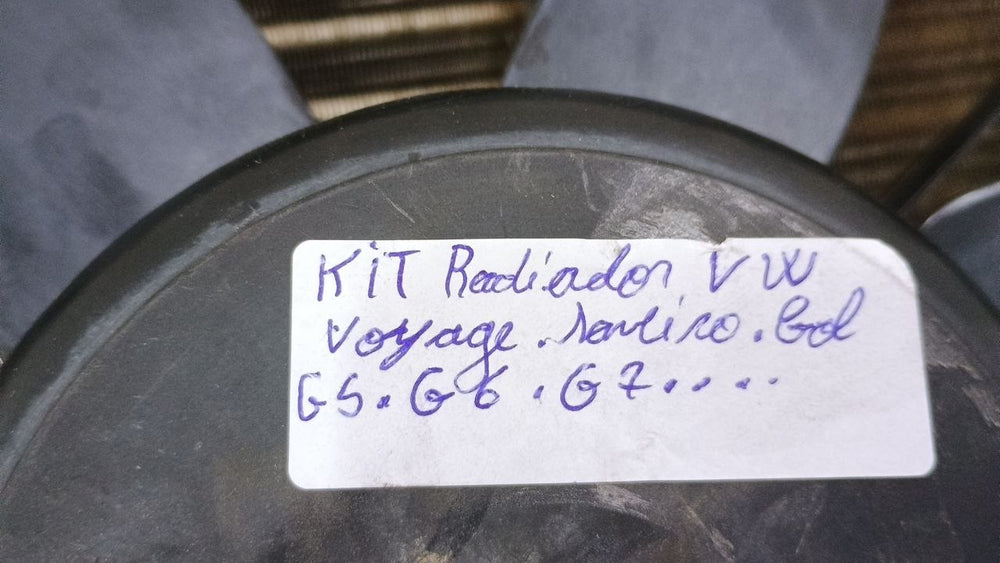 KIT Radiador VW
Voyage. Saveiro. Gol
G5. G6. G7....